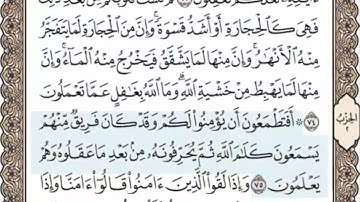 فَهِىَ كَٱلْحِجَارَةِ أَوْ أَشَدُّ قَسْوَةً ۚ وَإِنَّ مِنَ ٱلْحِجَارَةِ لَمَا يَتَفَجَّرُ
مِنْهُ ٱلْأَنْهَـٰرُ ۚ وَإِنَّ مِنْهَا لَمَا يَشَّقَّقُ فَيَخْرُجُ مِنْهُ ٱلْمَآءُ ۚ وَإِنَّ
مِنْهَا لَمَا يَهْبِطُ مِنْ خَشْيَةِ ٱللَّهِ ۗ وَمَا ٱللَّهُ بِغَـٰفِلٍ عَمَّا تَعْمَلُونَ
٧٤ أَفَتَطْمَعُونَ أَن يُؤْمِنُوا۟ لَكُمْ وَقَدْ كَانَ فَرِيقٌ مِّنْهُمْ
يَسْمَعُونَ كَلَـٰمَ ٱللَّهِ ثُمَّ يُحَرِّفُونَهُۥ مِنۢ بَعْدِ مَا عَقَلُوهُ وَهُمْ
يَعْلَمُونَ ٧٥ وَإِذَا لَقُوا۟ ٱلَّذِينَ ءَامَنُوا۟ قَالُوٓا۟ ءَامَنَّا وَإِذَا
الحزب
٢